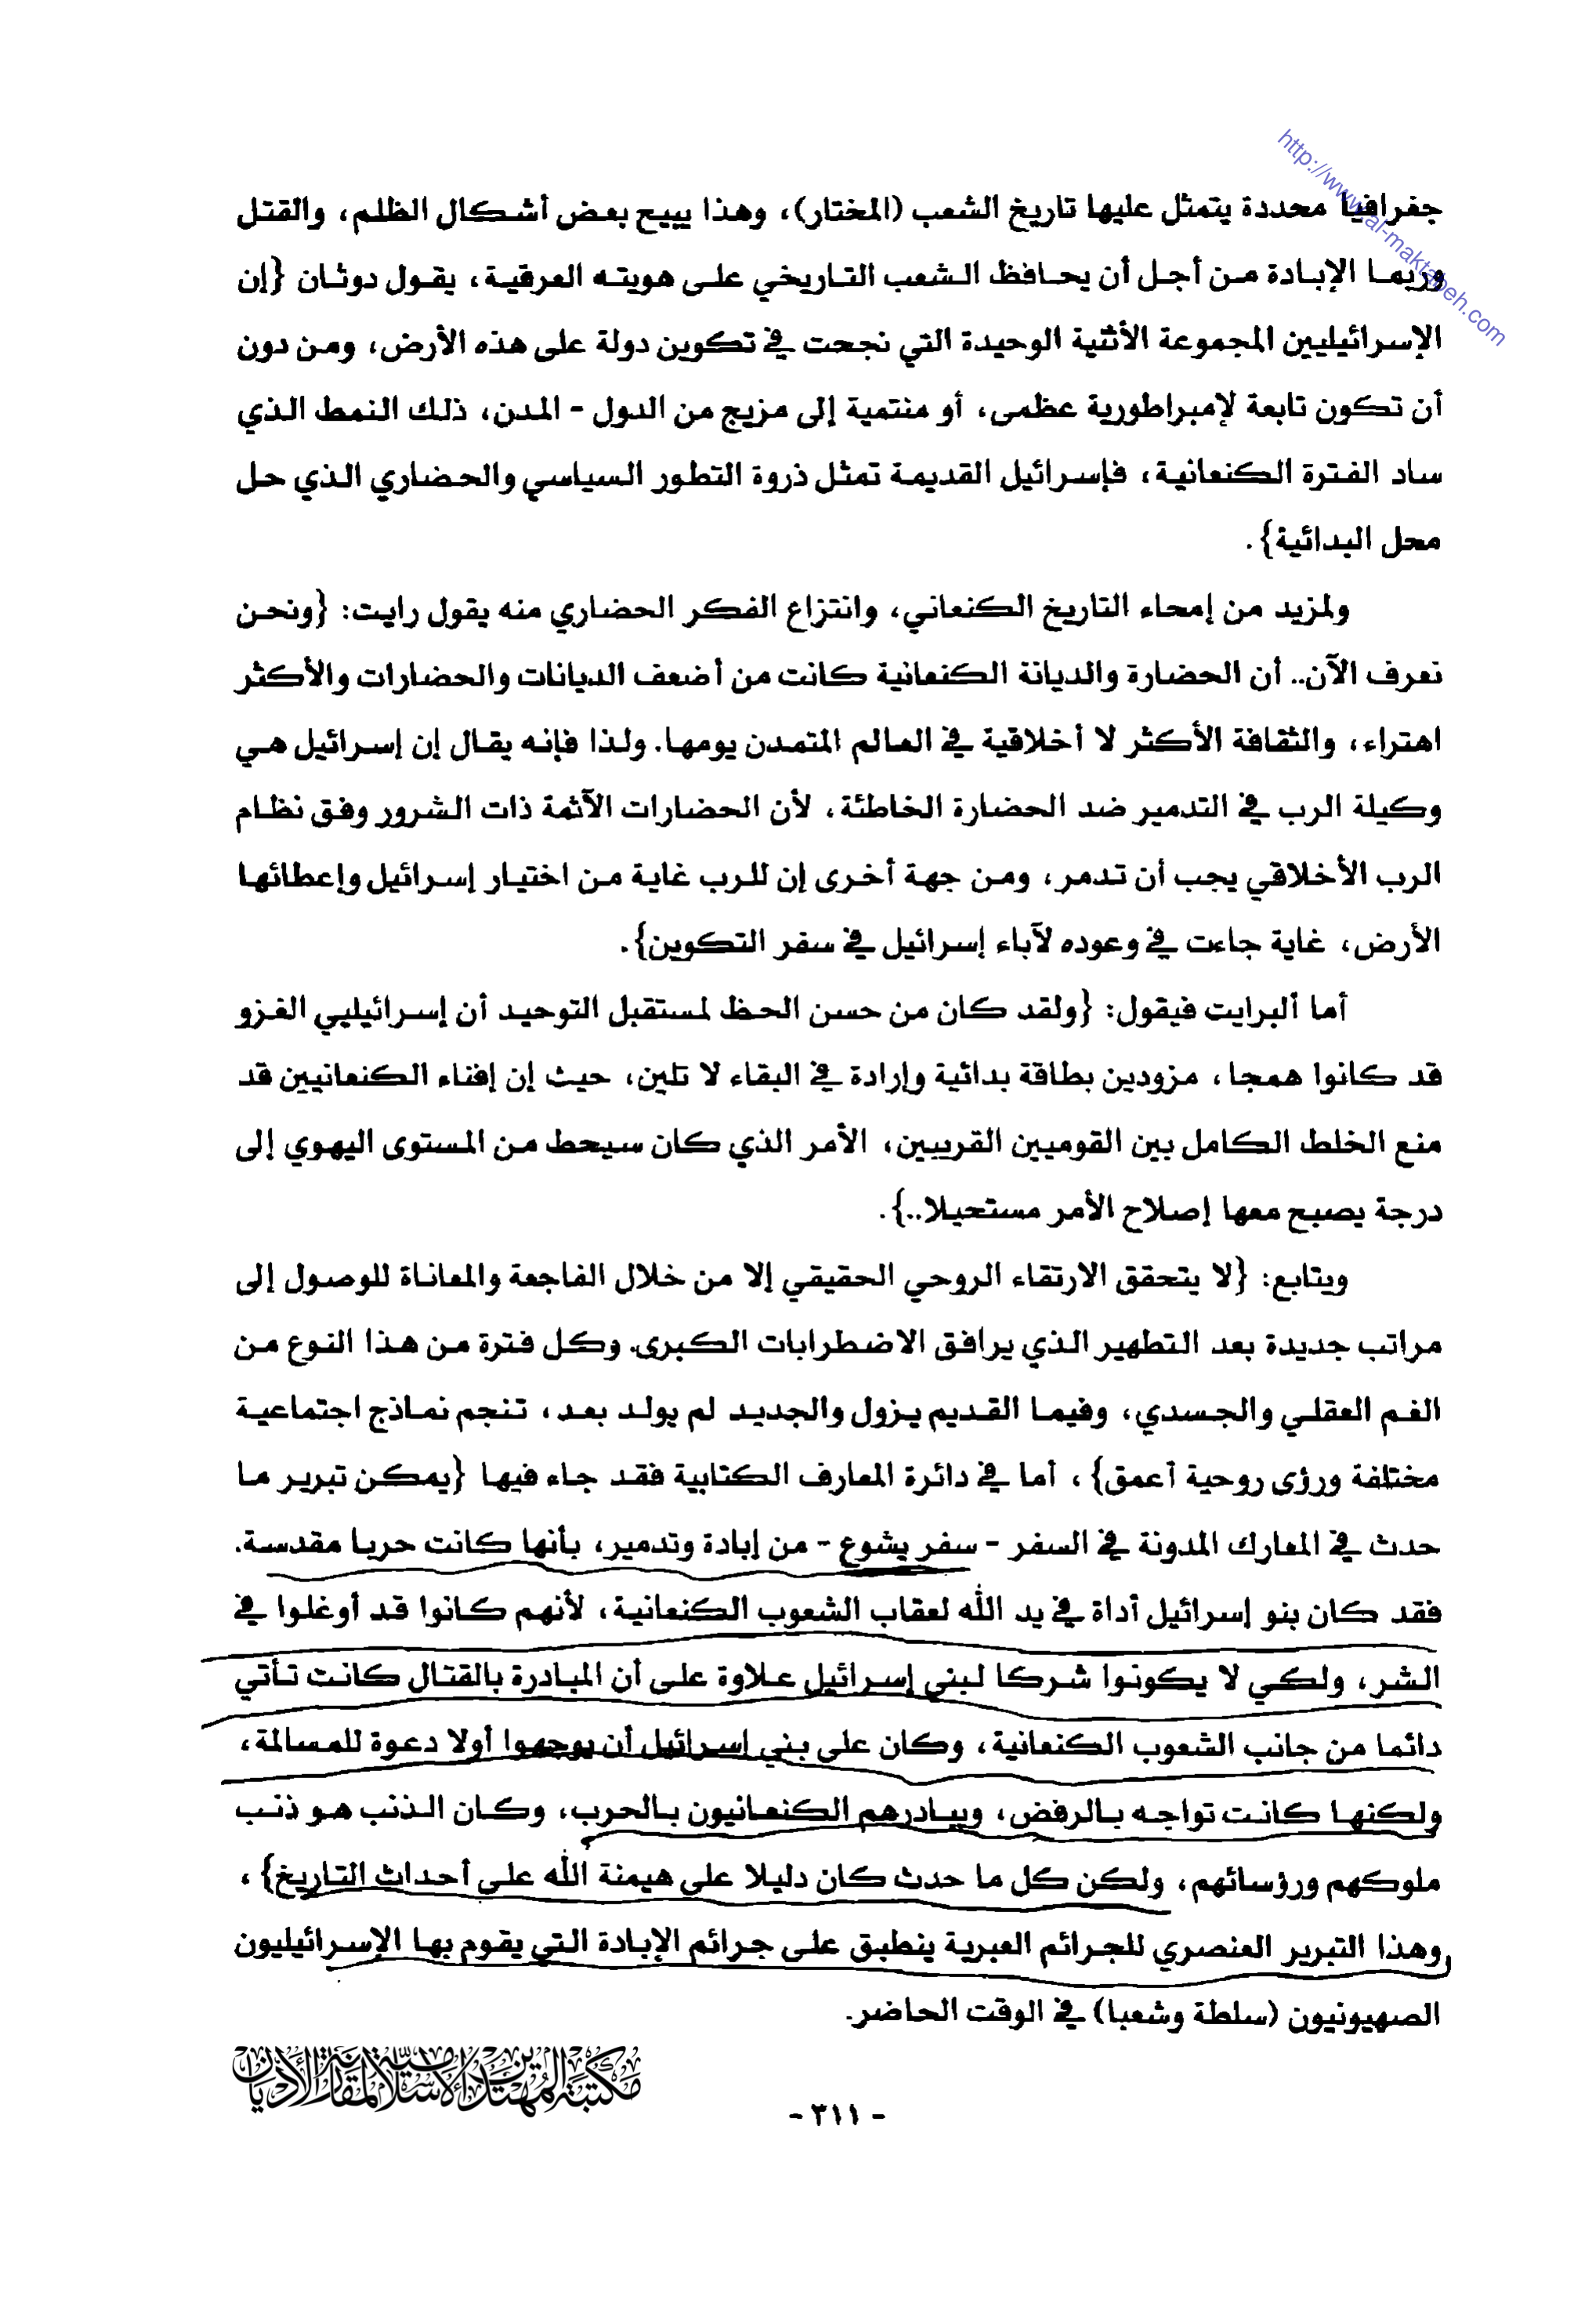 http://www.al-maktabeh.com
جغرافيا محددة يتمثل عليها تاريخ الشعب (المختار)، وهذا يبيح بعض أشكال الظلم، والقتل
وربما الإبادة من أجل أن يحافظ الشعب التاريخي على هويته العرقية، يقول دوثان {إن
الإسرائيليين المجموعة الأثنية الوحيدة التي نجحت في تكوين دولة على هذه الأرض، ومن دون
أن تكون تابعة لإمبراطورية عظمى، أو منتمية إلى مزيج من الدول - المدن، ذلك النمط الذي
ساد الفترة الكنعانية، فإسرائيل القديمة تمثل ذروة التطور السياسي والحضاري الذي حل
محل البدائية}.
ولمزيد من إمحاء التاريخ الكنعاني، وانتزاع الفكر الحضاري منه يقول رايت: {ونحن
نعرف الآن.. أن الحضارة والديانة الكنعانية كانت من أضعف الديانات والحضارات والأكثر
اهتراء، والثقافة الأكثر لا أخلاقية في العالم المتمدن يومها. ولذا فإنه يقال إن إسرائيل هي
وكيلة الرب في التدمير ضد الحضارة الخاطئة، لأن الحضارات الآثمة ذات الشرور وفق نظام
الرب الأخلاقي يجب أن تدمر، ومن جهة أخرى إن للرب غاية من اختيار إسرائيل وإعطائها
الأرض، غاية جاءت في وعوده لآباء إسرائيل في سفر التكوين}.
أما ألبرايت فيقول: {ولقد كان من حسن الحظ لمستقبل التوحيد أن إسرائيليي الغزو
قد كانوا همجا، مزودين بطاقة بدائية وإرادة في البقاء لا تلين، حيث إن إفناء الكنعانيين قد
منع الخلط الكامل بين القوميين القريبين، الأمر الذي كان سيحط من المستوى اليهوي إلى
درجة يصبح معها إصلاح الأمر مستحيلا..}.
ويتابع: {لا يتحقق الارتقاء الروحي الحقيقي إلا من خلال الفاجعة والمعاناة للوصول إلى
مراتب جديدة بعد التطهير الذي يرافق الاضطرابات الكبرى. وكل فترة من هذا النوع من
الغم العقلي والجسدي، وفيما القديم يزول والجديد لم يولد بعد، تنجم نماذج اجتماعية
مختلفة ورؤى روحية أعمق}، أما في دائرة المعارف الكتابية فقد جاء فيها {يمكن تبرير ما
حدث في المعارك المدونة في السفر - سفر يشوع - من إبادة وتدمير، بأنها كانت حربا مقدسة.
فقد كان بنو إسرائيل أداة في يد الله لعقاب الشعوب الكنعانية، لأنهم كانوا قد أوغلوا في
الشر، ولكي لا يكونوا شركا لبني إسرائيل علاوة على أن المبادرة بالقتال كانت تأتي
دائما من جانب الشعوب الكنعانية، وكان على بني إسرائيل أن يوجهوا أولا دعوة للمسالمة،
ولكنها كانت تواجه بالرفض، ويبادرهم الكنعانيون بالحرب، وكان الذنب هو ذنب
ملوكهم ورؤسائهم، ولكن كل ما حدث كان دليلا على هيمنة الله على أحداث التاريخ}،
وهذا التبرير العنصري للجرائم العبرية ينطبق على جرائم الإبادة التي يقوم بها الإسرائيليون
الصهيونيون (سلطة وشعبا) في الوقت الحاضر.
مكتبة المهتدين الإسلامية لمقارنة الأديان
- ٣١١ -